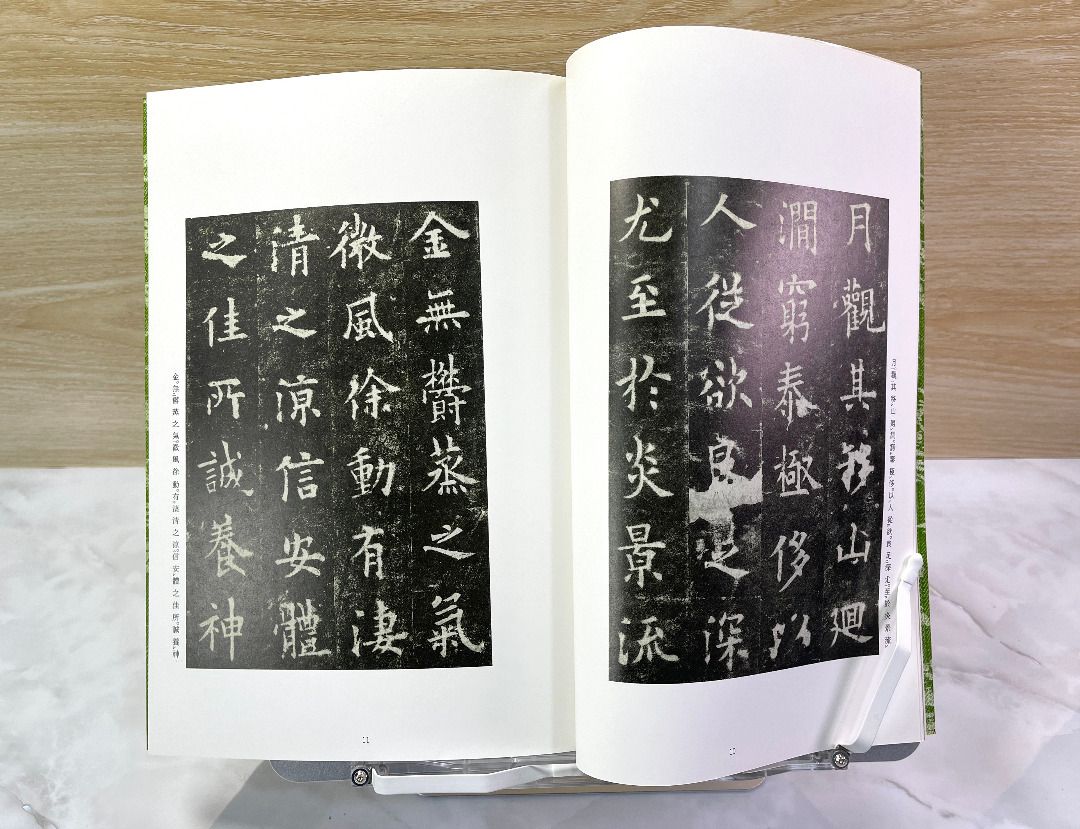 月觀其移山廻
澗窮泰極侈以
人從欲良足深
尤至於炎景流
月、觀其移山廻澗。窮泰極侈。以人從欲。良足深尤。至於炎景流
10
金無欝蒸之氣
微風徐動有淒
清之凉信安體
之佳所誠養神
金。無鬱蒸之氣。微風徐動。有淒清之凉。信安體之佳所。誠養神
11